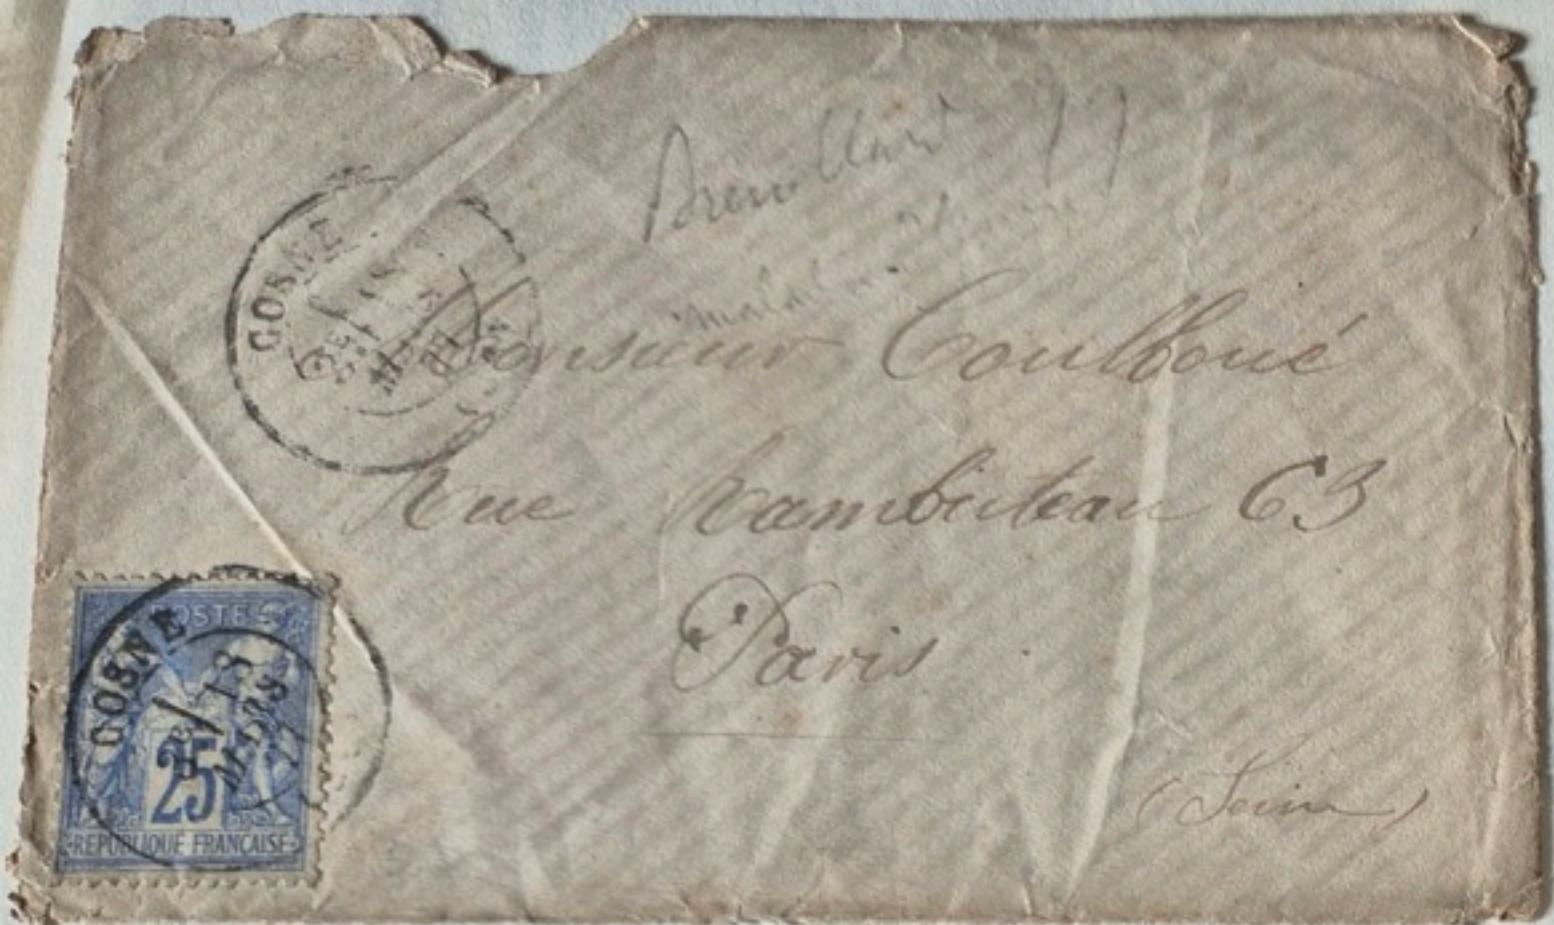 COSNE
Monsieur Coulboué
Rue Rambuteau 63
Paris
(Seine)
POSTES
COSNE
18
MARS
25
REPUBLIQUE FRANÇAISE